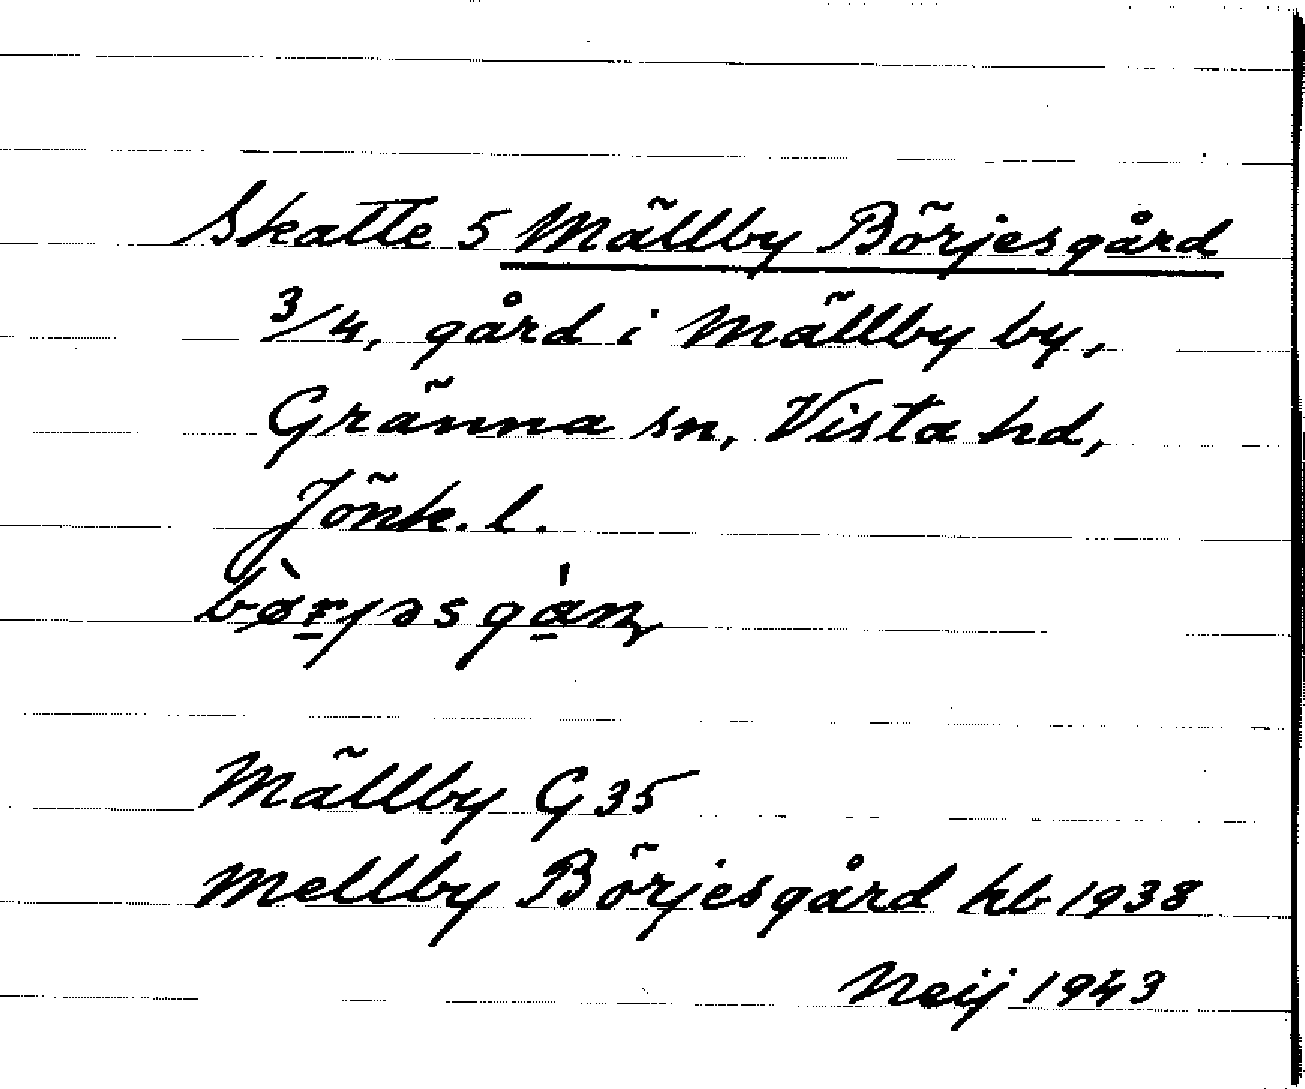 Skatte 5 Mällby Börjesgård
3/4, gård i Mällby by,
Gränna sn, Vista hd,
Jönk. l.
Mällby G 35
Mellby Börjesgård kb 1938
Neij 1943